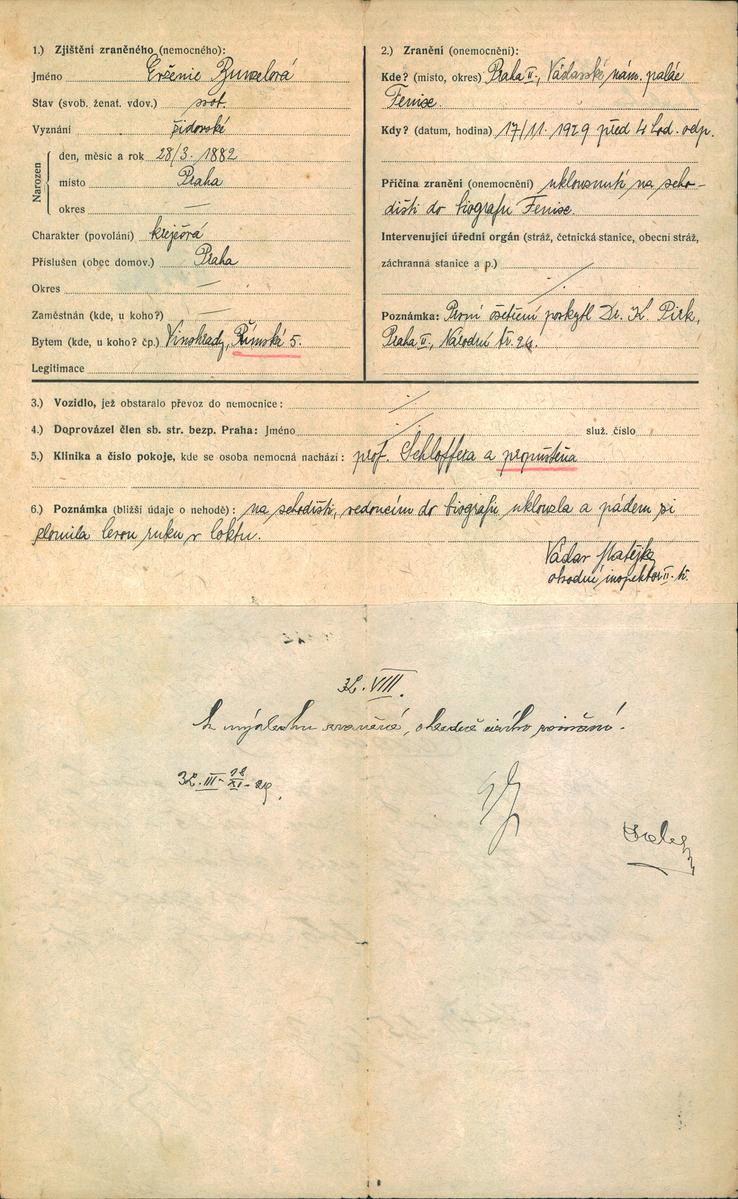 1.) Zjištění zraněného (nemocného):
Jméno Erženie Bunzelová
Stav (svob. ženat. vdov.) svob.
Vyznání židovské
Narozen
den, měsíc a rok 28/3. 1882
místo Praha
okres —
Charakter (povolání) krejčová
Příslušen (obec domov.) Praha
Okres —
Zaměstnán (kde, u koho?) —
Bytem (kde, u koho? čp.) Vinohrady, Římská 5.
Legitimace
2.) Zranění (onemocnění):
Kde? (místo, okres) Praha II., Václavské nám. palác
Fenise.
Kdy? (datum, hodina) 17/11. 1929 před 4 hod. odp.
Příčina zranění (onemocnění) uklouznutí na scho-
dišti do biografu Fenise.
Intervenující úřední orgán (stráž, četnická stanice, obecní stráž,
záchranná stanice a p.)
Poznámka: První ošetření poskytl Dr. K. Pirk,
Praha II., Národní tř. 26.
3.) Vozidlo, jež obstaralo převoz do nemocnice:
4.) Doprovázel člen sb. str. bezp. Praha: Jméno služ. číslo
5.) Klinika a číslo pokoje, kde se osoba nemocná nachází: prof. Schloffera a propuštěna
6.) Poznámka (bližší údaje o nehodě): na schodišti, vedoucím do biografu uklouzla a pádem si
zlomila levou ruku v loktu.
Václav Matějka
obvodní inspektor II. tř.
VIII.
K výslechu zraněné, ohledně cizího zavinění.